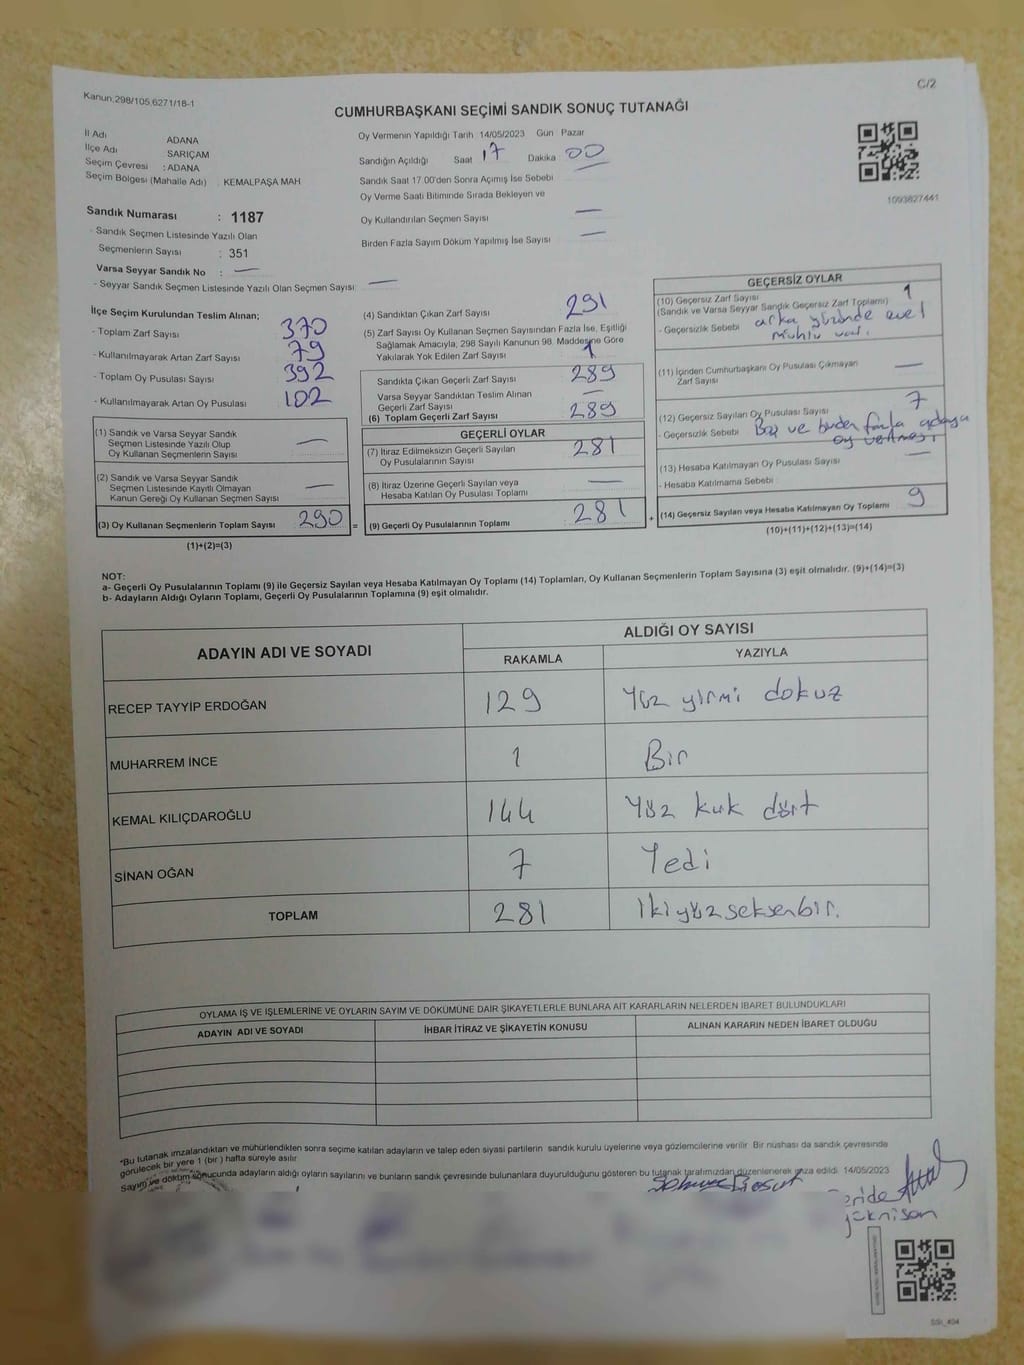 Kanun.298/105,6271/18-1
C/2
CUMHURBAŞKANI SEÇİMİ SANDIK SONUÇ TUTANAĞI
İl Adı ADANA
İlçe Adı SARIÇAM
Seçim Çevresi : ADANA
Seçim Bölgesi (Mahalle Adı) : KEMALPAŞA MAH
Sandık Numarası : 1187
- Sandık Seçmen Listesinde Yazılı Olan
Seçmenlerin Sayısı : 351
Varsa Seyyar Sandık No : —
- Seyyar Sandık Seçmen Listesinde Yazılı Olan Seçmen Sayısı : —
Oy Vermenin Yapıldığı Tarih 14/05/2023 Gun Pazar
Sandığın Açıldığı Saat 17 Dakika 00
Sandık Saat 17.00'den Sonra Açımış İse Sebebi
Oy Verme Saati Bitiminde Sırada Bekleyen ve
Oy Kullandırılan Seçmen Sayısı —
Birden Fazla Sayım Döküm Yapılmış İse Sayısı —
1093827441
İlçe Seçim Kurulundan Teslim Alınan;
- Toplam Zarf Sayısı 370
- Kullanılmayarak Artan Zarf Sayısı 79
- Toplam Oy Pusulası Sayısı 392
- Kullanılmayarak Artan Oy Pusulası 102
(1) Sandık ve Varsa Seyyar Sandık
Seçmen Listesinde Yazılı Olup
Oy Kullanan Seçmenlerin Sayısı —
(2) Sandık ve Varsa Seyyar Sandık
Seçmen Listesinde Kayıtlı Olmayan
Kanun Gereği Oy Kullanan Seçmen Sayısı —
(3) Oy Kullanan Seçmenlerin Toplam Sayısı 290 =
(1)+(2)=(3)
(4) Sandıktan Çıkan Zarf Sayısı 291
(5) Zarf Sayısı Oy Kullanan Seçmen Sayısından Fazla İse, Eşitliği
Sağlamak Amacıyla, 298 Sayılı Kanunun 98. Maddesine Göre
Yakılarak Yok Edilen Zarf Sayısı 1
Sandıkta Çıkan Geçerli Zarf Sayısı 289
Varsa Seyyar Sandıktan Teslim Alınan
Geçerli Zarf Sayısı —
(6) Toplam Geçerli Zarf Sayısı 289
GEÇERLİ OYLAR
(7) İtiraz Edilmeksizin Geçerli Sayılan
Oy Pusulalarının Sayısı 281
(8) İtiraz Üzerine Geçerli Sayılan veya
Hesaba Katılan Oy Pusulası Toplamı —
(9) Geçerli Oy Pusulalarının Toplamı : 281 +
GEÇERSİZ OYLAR
(10) Geçersiz Zarf Sayısı 1
(Sandık ve Varsa Seyyar Sandık Geçersiz Zarf Toplamı)
- Geçersizlik Sebebi arka yüzünde evet
mühlü var.
(11) İçinden Cumhurbaşkanı Oy Pusulası Çıkmayan
Zarf Sayısı —
(12) Geçersiz Sayılan Oy Pusulası Sayısı 7
- Geçersizlik Sebebi Boş ve birden fazla adaya
oy verilmesi
(13) Hesaba Katılmayan Oy Pusulası Sayısı —
- Hesaba Katılmama Sebebi :
(14) Geçersiz Sayılan veya Hesaba Katılmayan Oy Toplamı 9
(10)+(11)+(12)+(13)=(14)
NOT:
a- Geçerli Oy Pusulalarının Toplamı (9) ile Geçersiz Sayılan veya Hesaba Katılmayan Oy Toplamı (14) Toplamları, Oy Kullanan Seçmenlerin Toplam Sayısına (3) eşit olmalıdır. (9)+(14)=(3)
b- Adayların Aldığı Oyların Toplamı, Geçerli Oy Pusulalarının Toplamına (9) eşit olmalıdır.
ADAYIN ADI VE SOYADI
ALDIĞI OY SAYISI
RAKAMLA YAZIYLA
RECEP TAYYİP ERDOĞAN 129 Yüz yirmi dokuz
MUHARREM İNCE 1 Bir
KEMAL KILIÇDAROĞLU 144 Yüz kırk dört
SİNAN OĞAN 7 Yedi
TOPLAM 281 İkiyüzseksenbir.
OYLAMA İŞ VE İŞLEMLERİNE VE OYLARIN SAYIM VE DÖKÜMÜNE DAİR ŞİKAYETLERLE BUNLARA AİT KARARLARIN NELERDEN İBARET BULUNDUKLARI
ADAYIN ADI VE SOYADI İHBAR İTİRAZ VE ŞİKAYETİN KONUSU ALINAN KARARIN NEDEN İBARET OLDUĞU
*Bu tutanak imzalandıktan ve mühürlendikten sonra seçime katılan adayların ve talep eden siyasi partilerin sandık kurulu üyelerine veya gözlemcilerine verilir. Bir nüshası da sandık çevresinde
görülecek bir yere 1 (bir) hafta süreyle asılır
Sayım ve döküm sonucunda adayların aldığı oyların sayılarını ve bunların sandık çevresinde bulunanlara duyurulduğunu gösteren bu tutanak tarafımızdan düzenlenerek imza edildi. 14/05/2023